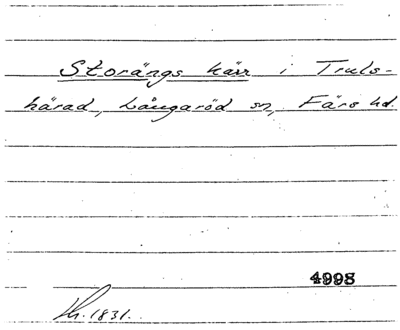 Storängs kärr i Truls-
härad, Långaröd sn, Färs hd.
4998
1831.